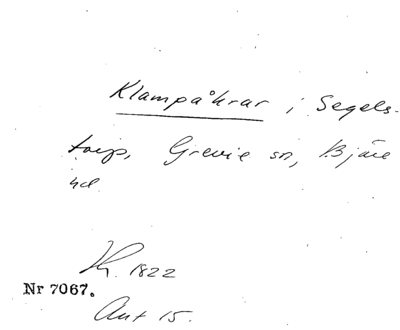 Klampåkrar i Segels-
torp, Grevie sn, Bjäre
hd.
1822
Nr 7067.
Ant 15.